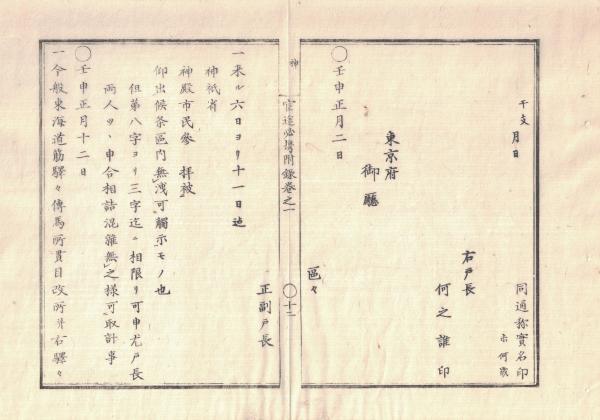 同通称實名印
当何歳
干支 月日
右戸長
何之誰印
東京府
御廳
○壬申正月二日
區々
正副戸長
神
官途必携附録巻之一
○十二
一来ル六日ヨリ十一日迄
神祇省
神殿市民參 拝被
仰出候条區内無洩可觸示モノ也
但第八字ヨリ三字迄ニ相限リ可申尤戸長
両人ツヽ申合相詰混雜無之様可取計事
○壬申正月十二日
一今般東海道筋驛々傳馬所貫目改所并右驛々